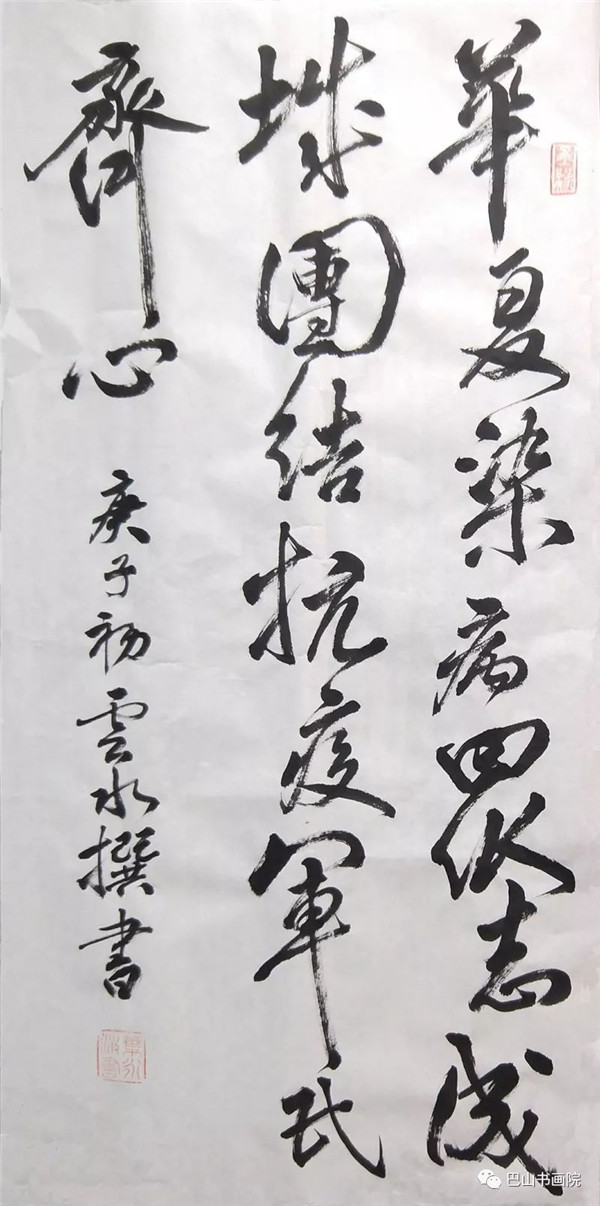 華夏染病回似志成
城團结抗疫軍民
齊心
庚子初雲水撰書
巴山书画院